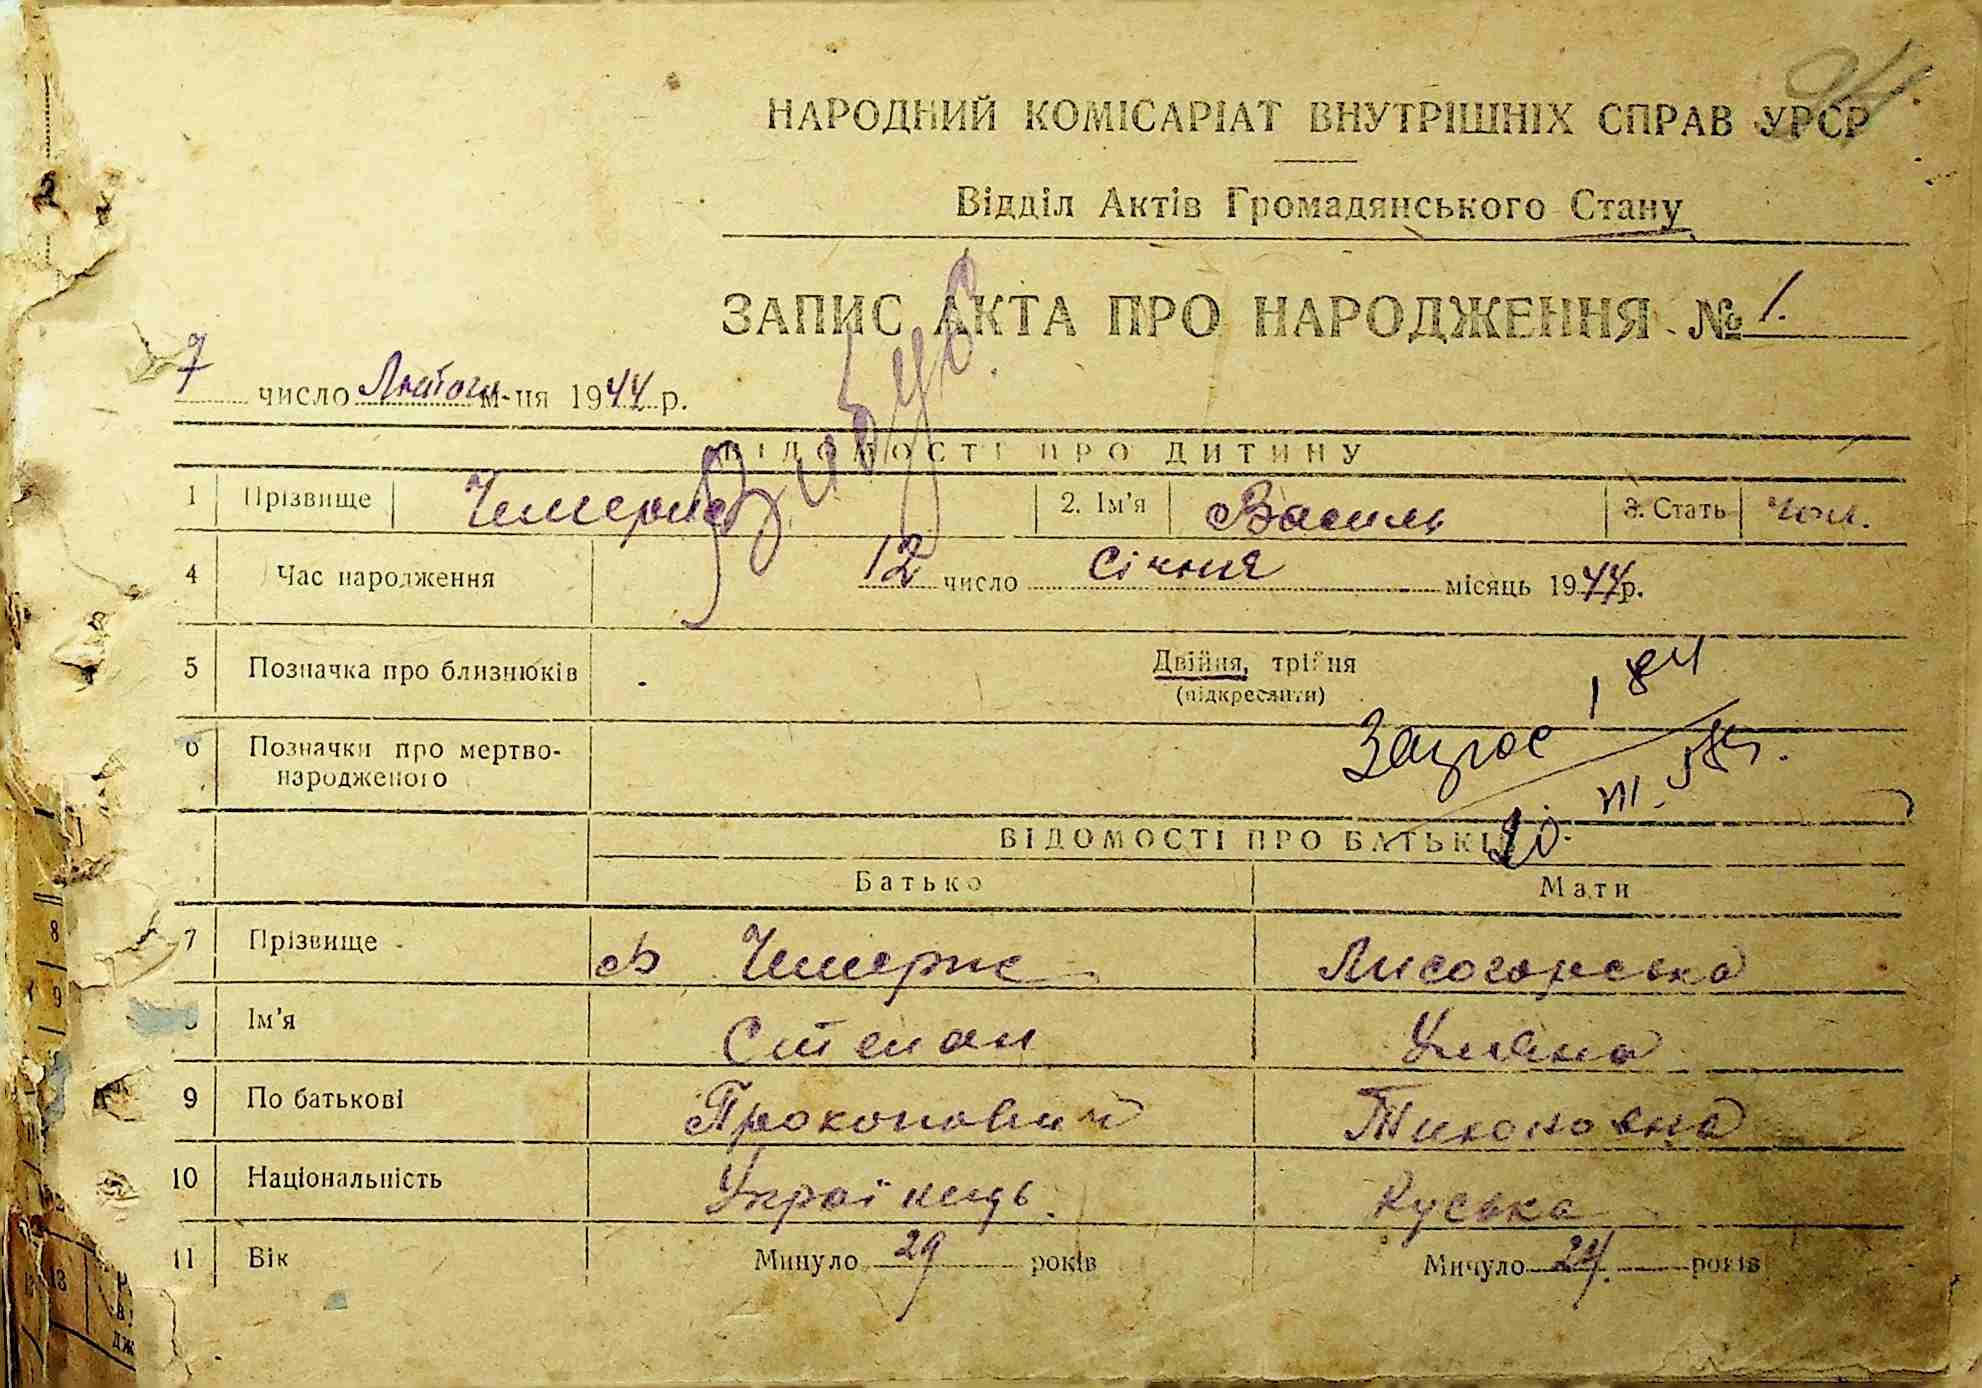 94.
НАРОДНИЙ КОМІСАРІАТ ВНУТРІШНІХ СПРАВ УРСР
Відділ Актів Громадянського Стану
ЗАПИС АКТА ПРО НАРОДЖЕННЯ № 1.
7 число Лютого м-ця 1944 р.
ВІДОМОСТІ ПРО ДИТИНУ
1 Прізвище Чемерис 2. Ім'я Василь 3. Стать чол.
4 Час народження 12 число Січня місяць 1944 р.
5 Позначка про близнюків Двійня, трійня
(підкреслити)
6 Позначки про мертво-
народженого
ВІДОМОСТІ ПРО БАТЬКІВ
Батько Мати
7 Прізвище Чемерис Лисогорська
Ім'я Степан Уляна
9 По батькові Прокопович Тихоновна
10 Національність Українець. Руська
11 Вік Минуло 29 років Минуло 24. років